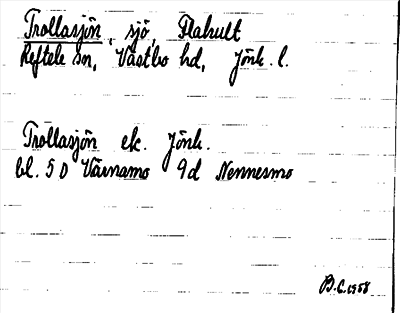 Trollasjön, sjö, Flahult
Reftele sn, Västbo hd, Jönk. l.
Trollasjön ek. Jönk.
bl. 5 D Värnamo 9d Nennesmo
B.C. 1958